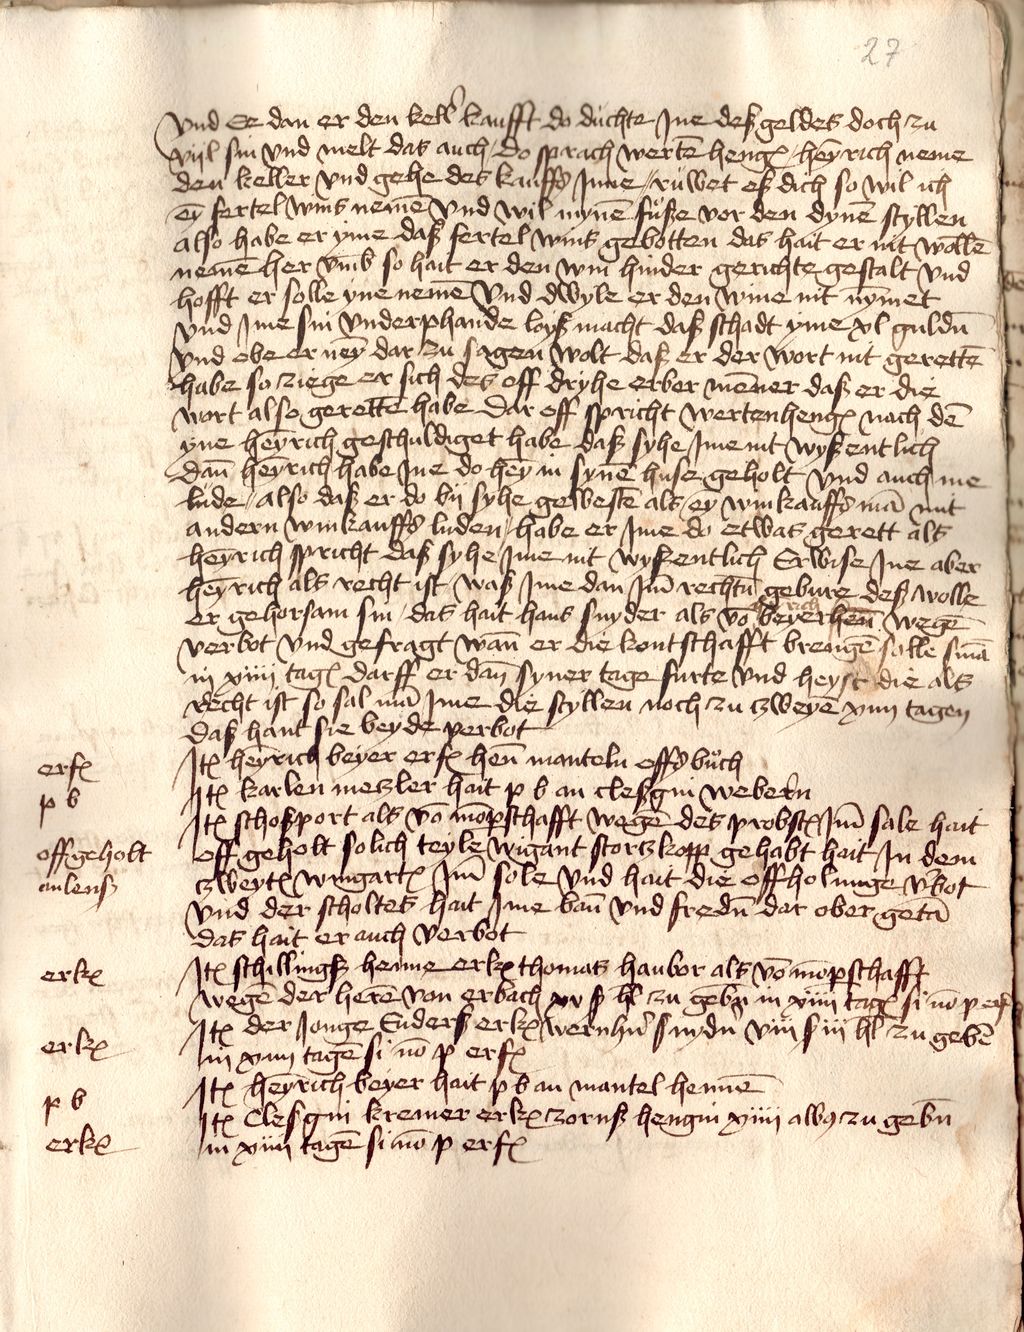 27
Vnd Ee dan er den kell' kaufft do duchte Ine deß geldes doch zu
vyl sin vnd melt das auch / do sprach werten heng heyrich neme
den keller vnd gehe des kauffs Inne / ruwet eß dich so wil ich
ey fertel wins nemē vnd wil mynē fuße vor den dynē styllen
also habe er yme daß fertel wins gebotten das hait er nit wollē
nemē her vmb so hait er den win hinder gerichte gestalt vnd
hofft er solle yne nemē vnd dwyle er den wine nit nymet
vnd Ime sin vnderphande loyß macht daß schadt yme xl guldū
vnd obe er neȳ dar zu sagen wolt daß er der wort nit gerettē
habe so ziege er sich des off dryhe erber menner daß er die
wort also gerettē habe Dar off spricht wertenheng nach dē
yne heyrich geschuldiget habe daß syhe Ime nit wyßentlich
Dan heyrich habe Ine do hey in synē huse geholt vnd auch me
lude / also daß er do by syhe gewestē als ey winkauffs mā mit
andern winkauffs luden / habe er Ime do etwas gerett als
heyrich spricht daß syhe Ime nit wyßentlich Erwise Ine aber
heyrich als recht ist waß Ime dan Im rechtn gebure deß wolle
er gehorsam sin / das hait hans snyder als vō beyerhen wegē
verbot vnd gefragt wan er die kontschafft brengē solle smā
in xiiii tag darff er dan syner tage furte vnd heyst die als
recht ist so sal mā Ime die styllen noch zu zweyē xiiii tagen
daß hant sie beyde verbot
erf Itꝭ heyrich beyer erf hen manteln offs buch
p b Itꝭ karlen metzler hait p b an cleßgin webern
Itꝭ schoßport als vō mōpschafft wegē des probst Im sale hait
offgeholt off geholt solich teyle wigant stortzkopp gehabt hait In dem
zweyt wingart Im sole vnd hait die offholunge v'bot
vnd der scholtes hait Ime ban vnd fredū dar ober getā
das hait er auch verbot
erk Itꝭ schillings henne erk thomas hanbor als vō mōpschafft
wegē der herē von erbach xv ß hl zu gebn in xiiii tag si nō p erf
erk Itꝭ der Jonge Enders erk wernher snyd' viii ß iii hl zu gebē
in xiiii tagē si nō p erf
p b Itꝭ heyrich beyer hait p b an mantel hennē
erk Itꝭ Clesgin kremer erk zorns hengin xiiii alb9 zu gebn
in xiiii tagē si nō p erf